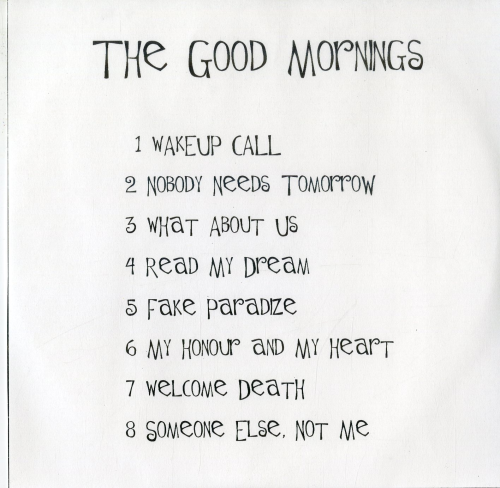 THE GOOD MORNINGS
1 WAKEUP CALL
2 NOBODY NEEDS TOMORROW
3 WHAT ABOUT US
4 READ MY DREAM
5 FAKE PARADIZE
6 MY HONOUR AND MY HEART
7 WELCOME DEATH
8 SOMEONE ELSE, NOT ME